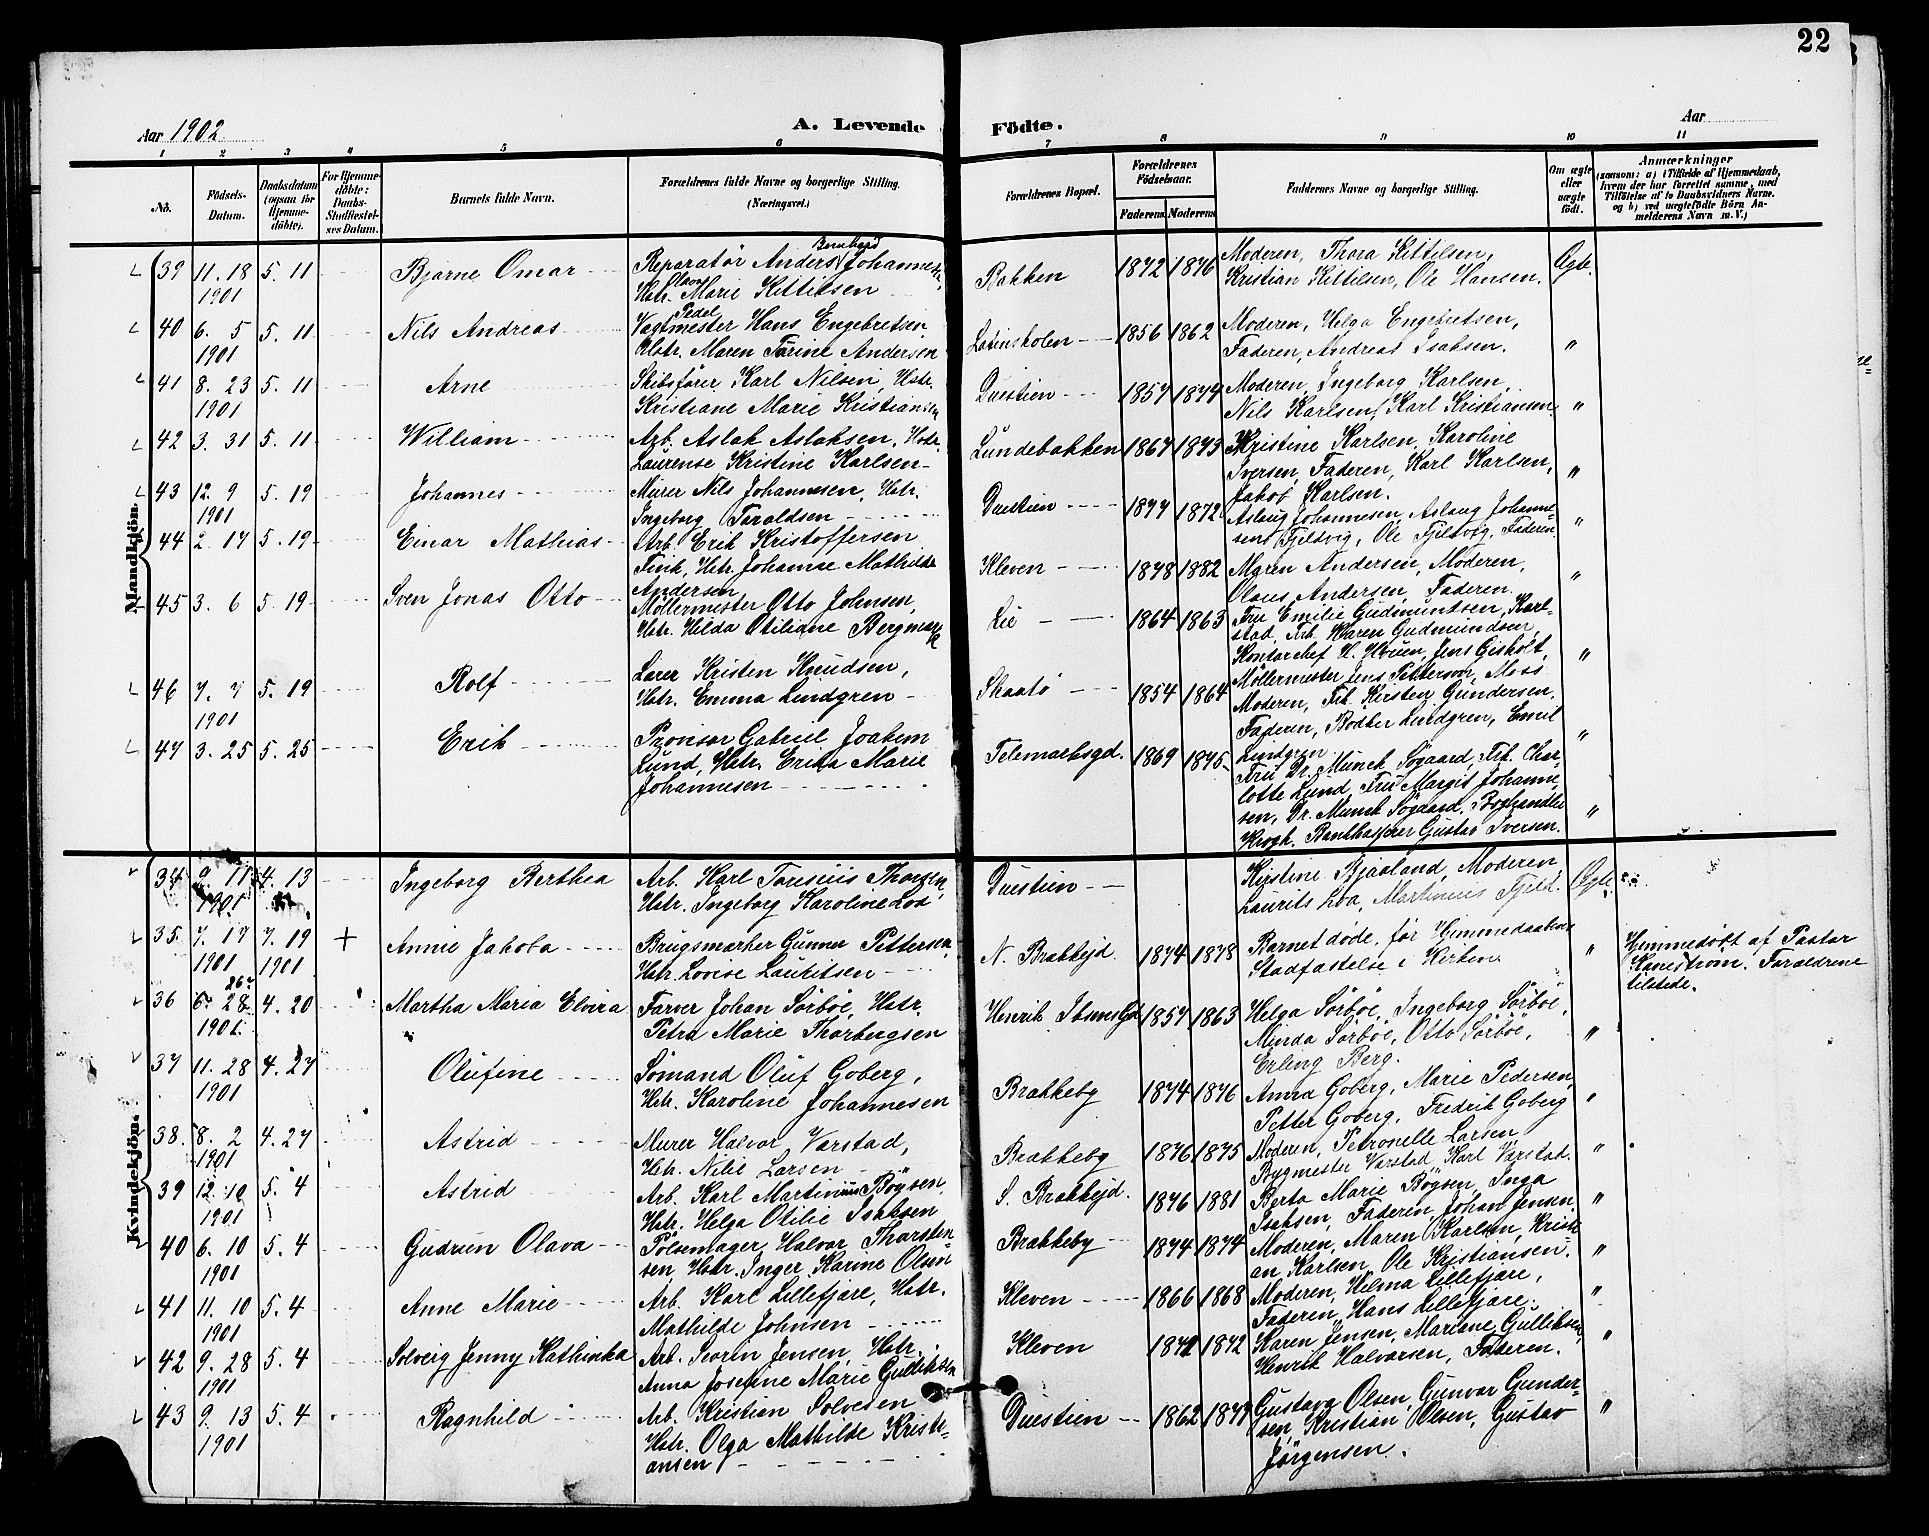 22
Aar 1902
A. Levende
Födte.
Aar
1 2 3 4 5 6 7 8 9 10 11
No.
Födsels-
Datum.
Daabsdatum
(ogsaa for
Hjemme-
döbte).
For Hjemme-
döbte:
Daabs-
Stadfæstel-
ses Datum.
Barnets fulde Navn.
Forældrenes fulde Navne og borgerlige Stilling.
(Næringsvei.)
Forældrenes Bopæl.
Forældrenes
Födselsaar.
Faderens Moderens
Faddernes Navne og borgerlige Stilling.
Om ægte
eller
uægte
födt.
Anmærkninger
(saasom: a) i Tilfælde af Hjemmedaab,
hvem der har forrettet samme, med
Tilföielse af to Daabsvidners Navne.
og b) ved uægtefödte Börn An-
melderens Navn m. V.)
Mandkjön.
39 11. 18 5. 11 Bjarne Omar Reparatør Anders Bernhard Johannes
1901 Hstr. Olava Marie Kittilsen
Bakken 1872 1876 Moderen, Thora Kittilsen, Ægte.
Kristian Kittilsen, Ole Hansen.
40 6. 5 5. 11 Nils Andreas Vagtmester Pedel Hans Engebretsen
1901 Hstr. Maren Tarine Andersen
Latinskolen 1856 1862 Moderen, Helga Engebretsen,
Faderen, Andreas Isaksen. "
41 8. 23 5. 11 Arne Skibsfører Karl Nilsen, Hstr.
1901 Kristiane Marie Kristiansen
Duestien 1857 1874 Moderen, Ingeborg Karlsen,
Nils Karlsen, Karl Kristiansen. "
42 3. 31 5. 11 William Arb. Aslak Aslaksen, Hstr.
Laurense Kristine Karlsen
Lundebakken 1867 1873 Kristine Karlsen, Karoline
Iversen, Faderen, Karl Karlsen, "
Jakob Karlsen.
43 12. 9 5. 19 Johannes Murer Nils Johannesen, Hstr.
1901 Ingeborg Taraldsen
Duestien 1877 1872 Aslaug Johannesen, Aslaug Johanne-
sens Fjeldvig, Ole Fjeldvig, Faderen. "
44 2. 17 5. 19 Einar Mathias Arb. Erik Kristoffersen
Tivik, Hstr. Johanne Mathilde
Andersen
Kleven 1878 1882 Maren Andersen, Moderen,
Olaus Andersen, Faderen. "
45 3. 6 5. 19 Sven Jonas Otto Møllermester Otto Johnsen,
Hstr. Hilda Otiliane Bergmark
Lie 1864 1863 Fru Emilie Gudmundsen, Karl-
stad, Frk. Karen Gudmundsen,
Kontorchef H. Hvim, Jens Gisholt, "
Møllermester Jens Pettersen, Moss
46 7. 7 5. 19 Rolf Lærer Kristen Knudsen,
1901 Hstr. Emma Lindgren
Skaatø 1854 1864 Moderen, Frk. Kirsten Gundersen,
Faderen, Bødker Lindgren, Emil "
Lindgren
47 3. 25 5. 25 Erik Provisor Gabriel Joakim
Lund, Hstr. Erika Marie
Johannesen
Telemarksgd. 1869 1875 Fru Dr. Munch Søgaard, Frk. Char-
lotte Lund, Fru Margit Johanne-
sen, Dr. Munch Søgaard, Boghandler "
Krogh, Bankkasserer Gustav Iversen.
Kvindekjön.
34 9. 11 4. 13 Ingeborg Berthea Arb. Karl Tinius Thorsen,
1901 Hstr. Ingeborg Karoline Loa
Duestien Kirstine Bjaaland, Moderen Ægte
Laurits Loa, Martinius Fjeld.
35. 7. 17 7. 19 + Annie Jakoba Brugsmærker Gunner Pettersen,
1901 1901 Hstr. Lovise Lauritsen
N. Brakkejd. 1874 1878 Barnet døde, før Himmedaabens "
Stadfæstelse i Kirken
Himmedøbt af Pastor
Kanestrøm. Forældrene
tilstede.
36 6. 28 26. 4. 20 Martha Maria Elvira Farver Johan Sørbøe, Hstr.
1901 Petra Marie Thorbergsen
Henrik Ibsens Gd. 1857 1863 Helga Sørbøe, Ingeborg Sørbøe,
Minda Sørbøe, Otto Sørbøe, "
Erling Berg.
37 11. 28 4. 27 Olufine Sømand Oluf Goberg,
1901 Hstr. Karoline Johannesen
Brakkeby 1874 1876 Anna Goberg, Marie Pedersen, "
Petter Goberg, Fredrik Goberg
38. 8. 2 4. 27 Astrid Murer Halvor Varstad,
1901 Hstr. Nilie Larsen
Brakkeby 1876 1875 Moderen, Petronelle Larsen "
Bygmester Varstad, Karl Varstad.
39 12. 10 5. 4 Astrid Arb. Karl Martinius Bøysen,
1901 Hstr. Helga Otilie Isaksen
S. Brakkejd. 1876 1881 Berta Marie Bøysen, Inga "
Isaksen, Faderen, Johan Jensen.
40 6. 10 5. 4 Gudrun Olava Pølsemager Halvor Thorsten-
1901 sen, Hstr. Inger Karine Olsen
Brakkeby 1874 1874 Moderen, Maren Karlsen, Kristi-
an Karlsen, Ole Kristiansen. "
41 11. 10 5. 4 Anne Marie Arb. Karl Lillefjære, Hstr.
1901 Mathilde Johnsen
Kleven 1866 1868 Moderen, Helma Lillefjære, "
Faderen, Hans Lillefjære.
42 9. 28 5. 4 Solveig Jenny Kathinka Arb. Søren Jensen, Hstr.
1901 Anna Josefine Marie Gulliksen
Kleven 1872 1872 Karen Jensen, Mariane Gulliksen, "
Henrik Halvorsen, Faderen.
43 9. 13 5. 4 Ragnhild Arb. Kristian Solvesen
1901 Hstr. Olga Mathilde Kristi-
ansen
Duestien 1862 1877 Gustava Olsen, Gunvor Gunder-
sen, Kristian Olsen, Gustav "
Jørgensen.